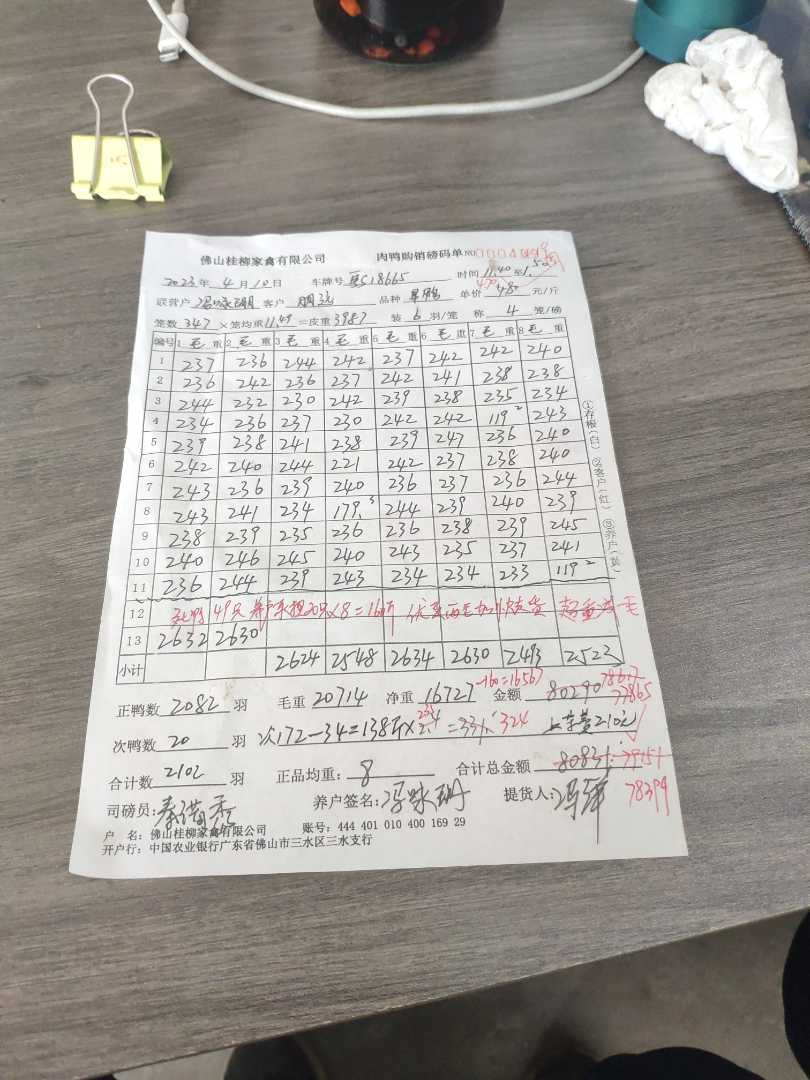 佛山桂柳家禽有限公司 肉鸭购销磅码单 NO 0004
2023年 4月 10日 车牌号 S18665 时间 11.40 至1.50
联营户 冯咏珊 客户 品种 单价 480 470 元/斤
笼数 347 ×笼均重 11.49 =皮重 3987 装 6 羽/笼 称 4 笼/磅
编号 1 毛 重 2 毛 重 3 毛 重 4 毛 重 5 毛 重 6 毛 重 7 毛 重 8 毛 重
1 237 236 244 242 237 242 242 240
2 236 242 236 237 242 241 238 238
3 244 232 230 242 239 238 235 234
4 234 236 237 230 242 242 119.2 243
5 239 238 241 238 239 247 236 240
6 242 240 244 221 242 237 238 240
7 243 236 239 240 236 237 236 244
8 243 241 234 179.3 244 239 240 239
9 238 239 235 236 236 238 239 245
10 240 246 245 240 243 235 237 241
11 236 244 239 243 234 234 233 119.2
12 49只 20只×8=160斤 超重 毛
13 2632 2630
小计 2624 2548 2634 2630 2493 2523
①存根(白) ②客户(红) ③养户(黄)
正鸭数 2082 羽 毛重 20714 净重 16727 -160=16567 金额 80290 78617 77865
次鸭数 20 羽 次172-34=138斤×2.4 =331. 324 上车费210元
合计数 2102 羽 正品均重: 8 合计总金额 80831. 79151
78399
司磅员: 养户签名: 冯咏珊 提货人:
户 名: 佛山桂柳家禽有限公司 账号: 444 401 010 400 169 29
开户行: 中国农业银行广东省佛山市三水区三水支行